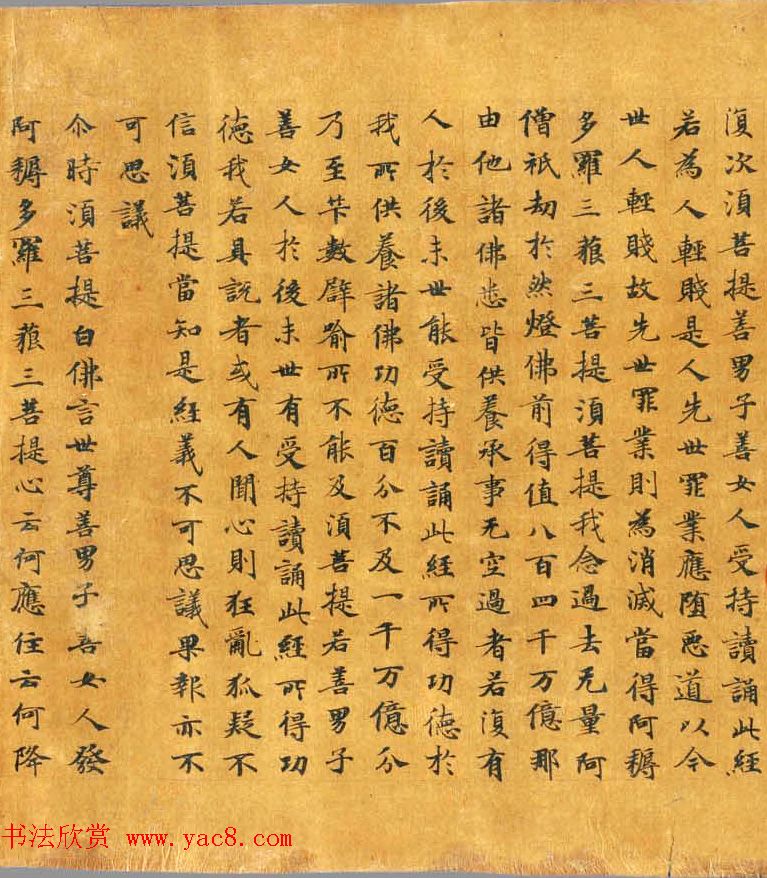 復次須菩提善男子善女人受持讀誦此經
若為人輕賤是人先世罪業應堕惡道以今
世人輕賤故先世罪業則為消滅當得阿耨
多羅三藐三菩提須菩提我念過去无量阿
僧祇劫於然燈佛前得值八百四千万億那
由他諸佛悉皆供養承事无空過者若復有
人於後末世能受持讀誦此經所得功德於
我所供養諸佛功德百分不及一千万億分
乃至筭數譬喻所不能及須菩提若善男子
善女人於後末世有受持讀誦此經所得功
德我若具說者或有人聞心則狂亂狐疑不
信須菩提當知是經義不可思議果報亦不
可思議
尒時須菩提白佛言世尊善男子善女人發
阿耨多羅三藐三菩提心云何應住云何降
书法欣赏 www.yac8.com